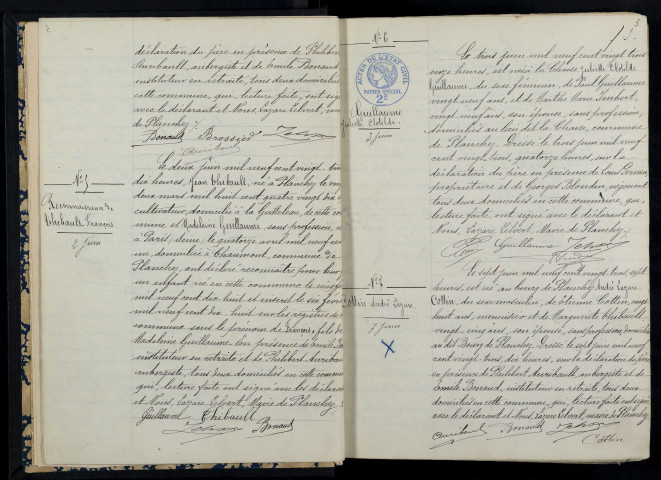 2
déclaration du père en présence de Philibert
Auribault, aubergiste et de Emile Bonaud
instituteur en retraite, tous deux domiciliés
que, lecture faite, ont signé
avec le déclarant et Nous, Lazare
de Planchez
Bonaud
Auribault
N° 5
Reconnaissance de
Thibault François
2 Juin
Le deux juin mil neuf cent vingt-trois
dix heures, Jean Thibault, né à Planchez le
deux mars mil huit cent quatre vingt dix
cultivateur, domicilié à
et Madeleine Guillaume, sans profession,
à Paris, Seine, le quatorze avril mil neuf cent
un, domiciliée à Chaumont, commune de
Planchez, ont déclaré reconnaître pour leur
un enfant né en cette commune le
mil neuf cent dix huit et inscrit le six
mil neuf cent dix huit sur les registres de
commune sous le prénom de François, fils de
Madeleine Guillaume. En présence de Emile
instituteur en retraite et de Philibert Auribault
aubergiste, tous deux domiciliés en cette commune
qui, lecture faite ont signé avec les déclarants
et Nous, Lazare, Maire de Planchez
Guillaume Thibault
Bonaud
N° 6
ACTES DE L'ETAT CIVIL
PAPIER SPECIAL
2F
Guillaume
Juliette Clotilde.
3 Juin
3
Le trois juin mil neuf cent vingt trois
onze heures, est née à la Chaise Juliette Clotilde
Guillaume, du sexe féminin, de Paul Guillaume
vingt neuf ans, et de Marthe Marie Imbert,
vingt neuf ans, son épouse, sans profession,
domiciliés au lieu dit la Chaise, commune
de Planchez. Dressé le trois juin mil neuf
cent vingt trois, quatorze heures, sur la
déclaration du père en présence de Louis
propriétaire et de Georges Blondin, négociant
tous deux domiciliés en cette commune, qui,
lecture faite, ont signé avec le déclarant et
Nous, Lazare, Maire de Planchez.
Guillaume
N° 7
Cottin André Lazare
7 Juin
Le sept juin mil neuf cent vingt trois, sept
heures, est né au bourg de Planchez André Lazare
Cottin, du sexe masculin, de Etienne Cottin, vingt
huit ans, menuisier et de Marguerite Thibault
vingt cinq ans, son épouse, sans profession, domiciliés
au dit Bourg de Planchez. Dressé le sept juin mil neuf
cent vingt trois, dix heures, sur la déclaration du père
en présence de Philibert Auribault, aubergiste et de
Emile Bonaud, instituteur en retraite, tous deux
domiciliés en cette commune, qui, lecture faite ont signé
avec le déclarant et Nous, Lazare, maire de Planchez
Auribault Bonaud
Cottin